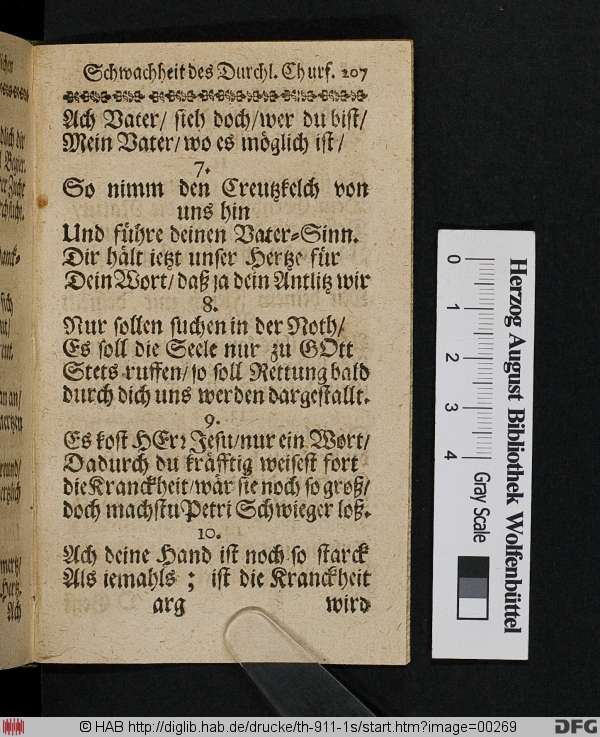 Schwachheit des Durchl. Churf. 207
Ach Vater/ sieh doch/wer du bist/
Mein Vater/ wo es möglich ist/
7.
So nimm den Creutzkelch von
uns hin
Und führe deinen Vater-Sinn.
Dir hält ietzt unser Hertze für
Dein Wort/ daß ja dein Antlitz wir
8.
Nur sollen suchen in der Noth/
Es soll die Seele nur zu GOtt
Stets ruffen/ so soll Rettung bald
durch dich uns werden dargestallt.
9.
Es kost HErr Jesu/ nur ein Wort/
Dadurch du kräfftig weisest fort
die Kranckheit/ wär sie noch so groß/
doch machstu Petri Schwieger loß.
10.
Ach deine Hand ist noch so starck
Als iemahls ; ist die Kranckheit
arg wird
Ach
0 1 2 3 4
Gray Scale
Herzog August Bibliothek Wolfenbüttel
© HAB http://diglib.hab.de/drucke/th-911-1s/start.htm?image=00269
DFG